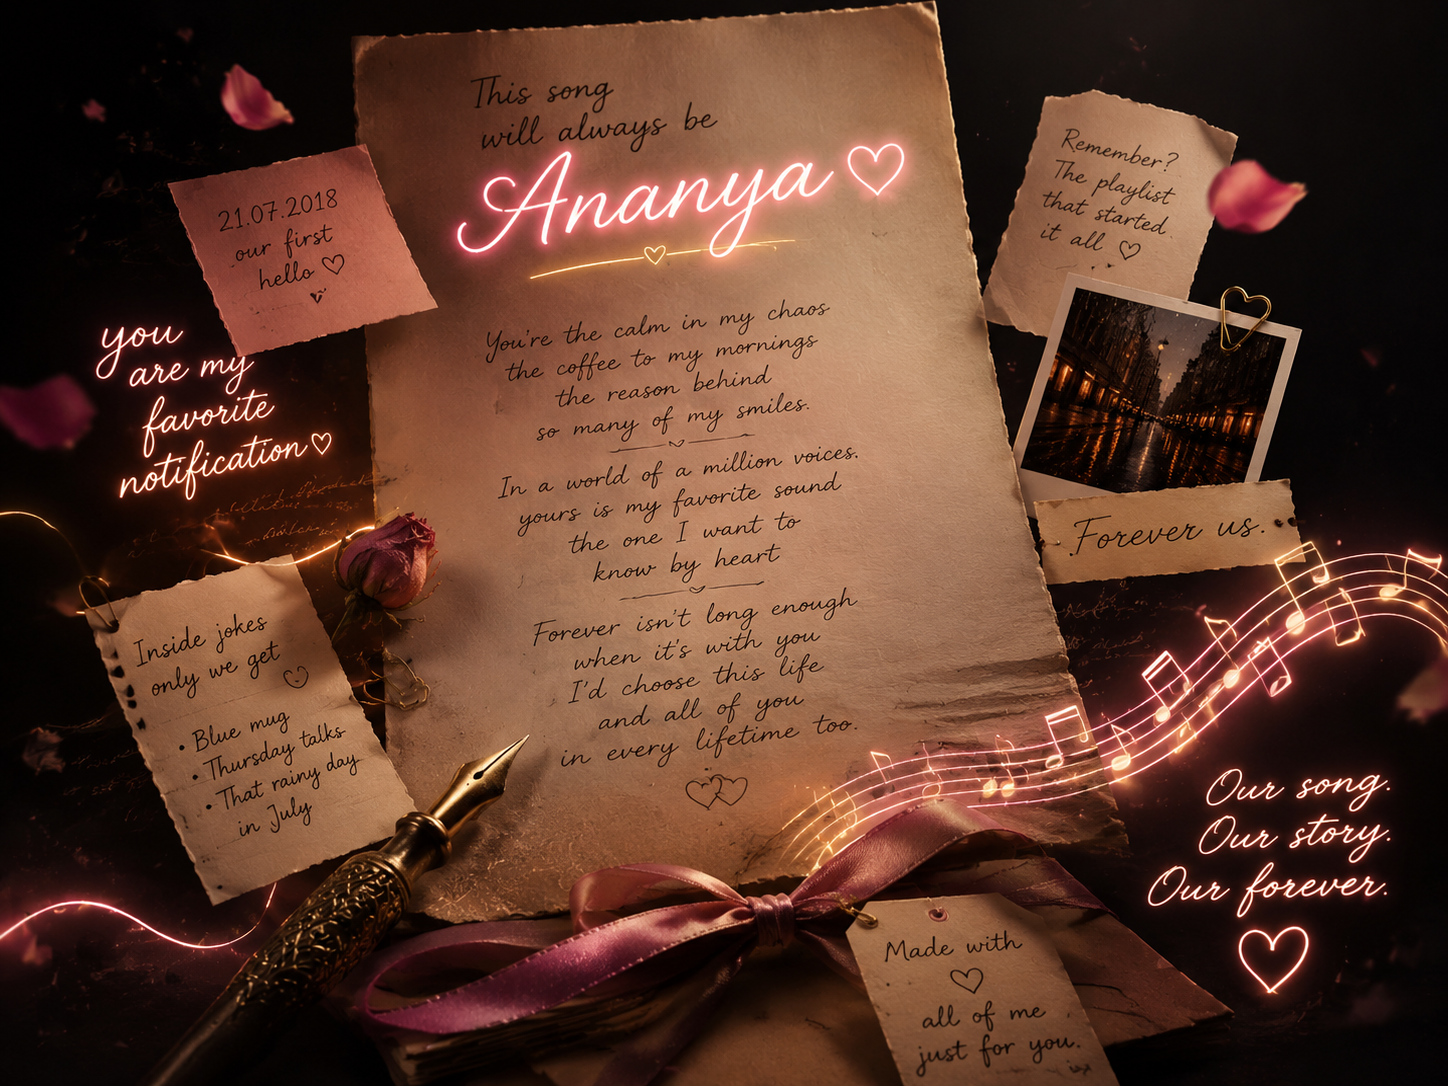 This song
will always be
Ananya ♡
You're the calm in my chaos
the coffee to my mornings
the reason behind
so many of my smiles.
In a world of a million voices.
yours is my favorite sound
the one I want to
know by heart
Forever isn't long enough
when it's with you
I'd choose this life
and all of you
in every lifetime too.
21.07.2018
our first
hello ♡
you
are my
favorite
notification ♡
Inside jokes
only we get
♡
• Blue mug
• Thursday talks
• That rainy day
in July
Remember?
The playlist
that started
it all ♡
Forever us.
Our song.
Our story.
Our forever.
♡
Made with
♡
all of me
just for you.